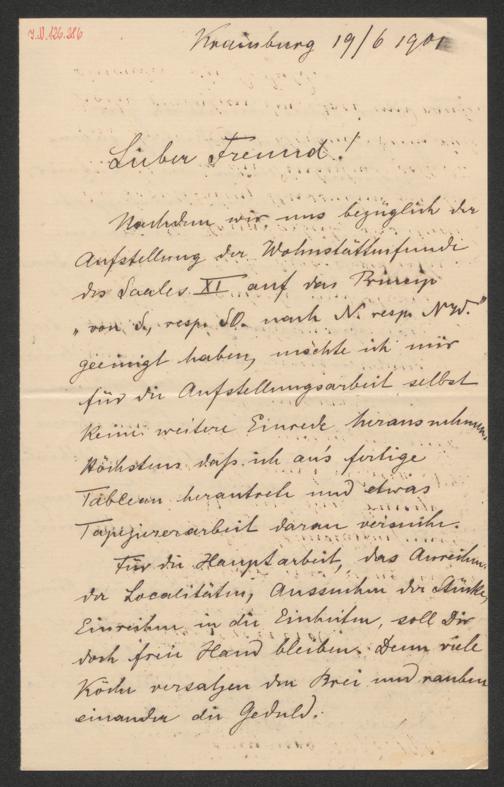 I.N. 126.286
Krainburg 19/6 1901
Lieber Freund!
Nachdem wir uns bezüglich der
Aufstellung der Wohnstättenfunde
des Saales XI auf das Princip
„von S., resp. SO. nach N. resp. NW.“
geeinigt haben, möchte ich mir
für die Aufstellungsarbeit selbst
keine weitere Einrede herausnehmen,
höchstens daß ich an's fertige
Tableau herantrete und etwas
Tapeziererarbeit daran versuche.
Für die Hauptarbeit, das Anreihen
der Localitäten, Aussuchen der Stücke,
Einreihen in die Einheiten, soll Dir
doch freie Hand bleiben. Denn viele
Köche versalzen den Brei und rauben
einander die Geduld.